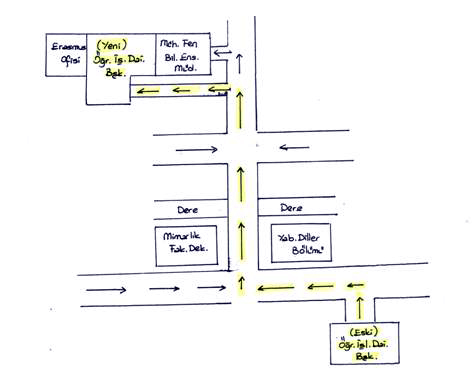 Erasmus
Ofisi
(Yeni)
Öğr. İş. Dai.
Bşk.
Müh. Fen
Bil. Ens.
Müd.
Dere
Dere
Mimarlık
Fak. Dek.
Yab. Diller
Bölümü
(Eski)
Öğr. İşl. Dai.
Bşk.